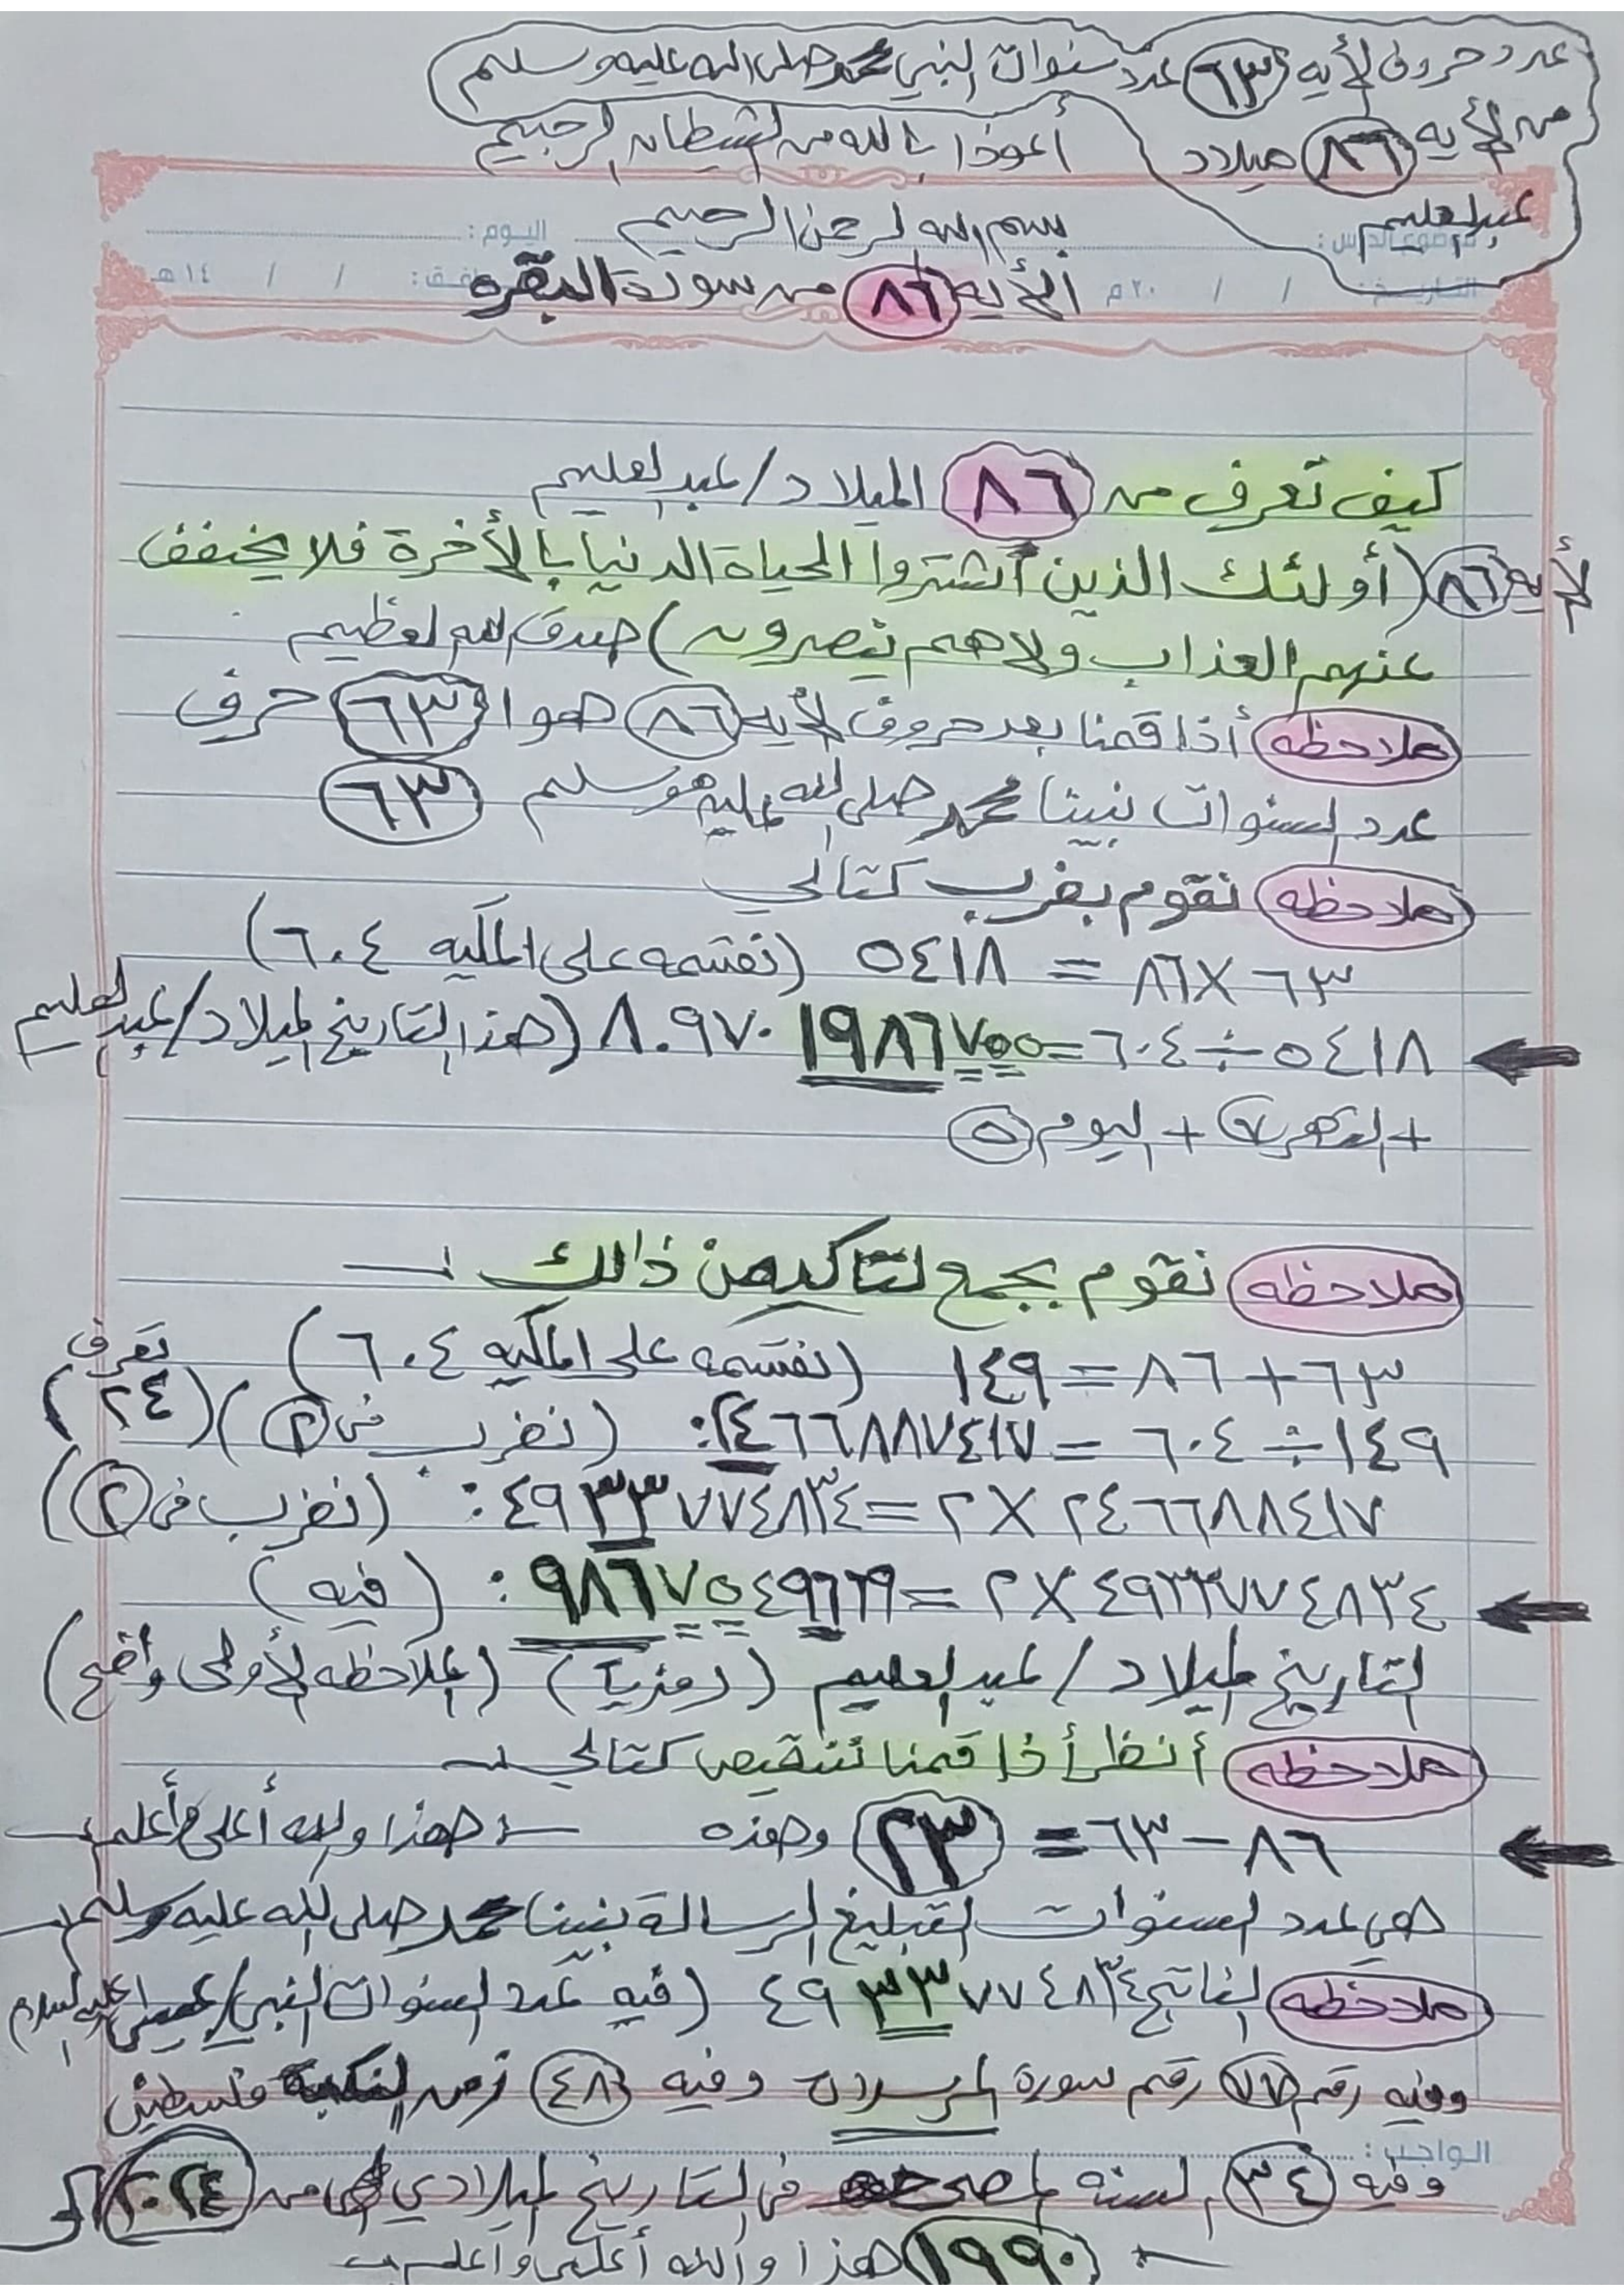 عدد حروف الأيه ٦٣ عدد سنوات النبي محمد صلى الله عليه وسلم
من الأيه ٨٦ ميلاد
عبدالعليم
أعوذا بالله من الشيطان الرجيم
بسم الله الرحمن الرحيم
موضوع الدرس : اليوم :
التاريخ : / / ٢٠م / / ١٤هـ
الأيه ٨٦ من سورة البقره
كيف تعرف من ٨٦ الميلاد/عبدالعليم
لأيه ٨٦ (أولئك الذين أشتروا الحياة الدنيا بالأخرة فلا يخفف
عنهم العذاب ولا هم ينصرون) صدق الله العظيم
ملاحظه أذا قمنا بعد حروف الأيه ٨٦ هوا ٦٣ حرف
عدد السنوات نبينا محمد صلى الله عليه وسلم ٦٣
ملاحظه نقوم بضرب كتالي
٦٣ × ٨٦ = ٥٤١٨ (نقسمه على المكيه ٦٠٤)
٥٤١٨ ÷ ٦٠٤ = ٨.٩٧٠١٩٨٦٧٥٥ (هذا التاريخ الميلاد/عبدالعليم
+ الشهر ٧ + اليوم ٥
ملاحظه نقوم بجمع لتتأكد من ذالك :ـ
٦٣ + ٨٦ = ١٤٩ (نقسمه على المكيه ٦٠٤)
١٤٩ ÷ ٦٠٤ = ٢٤٦٦٨٨٧٤١٧. (نضرب في ٢) (تعرف ٢٤)
٢٤٦٦٨٨٤١٧ × ٢ = ٤٩٣٣٧٧٤٨٣٤. (نضرب في ٢)
٤٩٣٣٧٧٤٨٣٤ × ٢ = ٩٨٦٧٥٤٩٦٦٩. (فيه)
التاريخ الميلاد/عبدالعليم (رمزياً) (الملاحظه الأولى واضح)
ملاحظه أنظر أذا قمنا تنقيص كتالي :ـ
٨٦ - ٦٣ = ٢٣ وهذه هذا والله أعلى وأعلم
هي عدد السنوات لتبليغ الرسالة نبينا محمد صلى الله عليه وسلم
ملاحظه الناتج ٤٩٣٣٧٧٤٨٣٤ (فيه عدد السنوات النبي/عيسى عليه السلام
وفيه رقم ٧٧ رقم سورة المرسلات وفيه ٤٨ زمن النكبة فلسطين
الواجب :
وفيه ٣٤ السنه في التاريخ الميلادي من ٢٠٢٤
١٩٩٠ هذا والله أعلى وأعلم